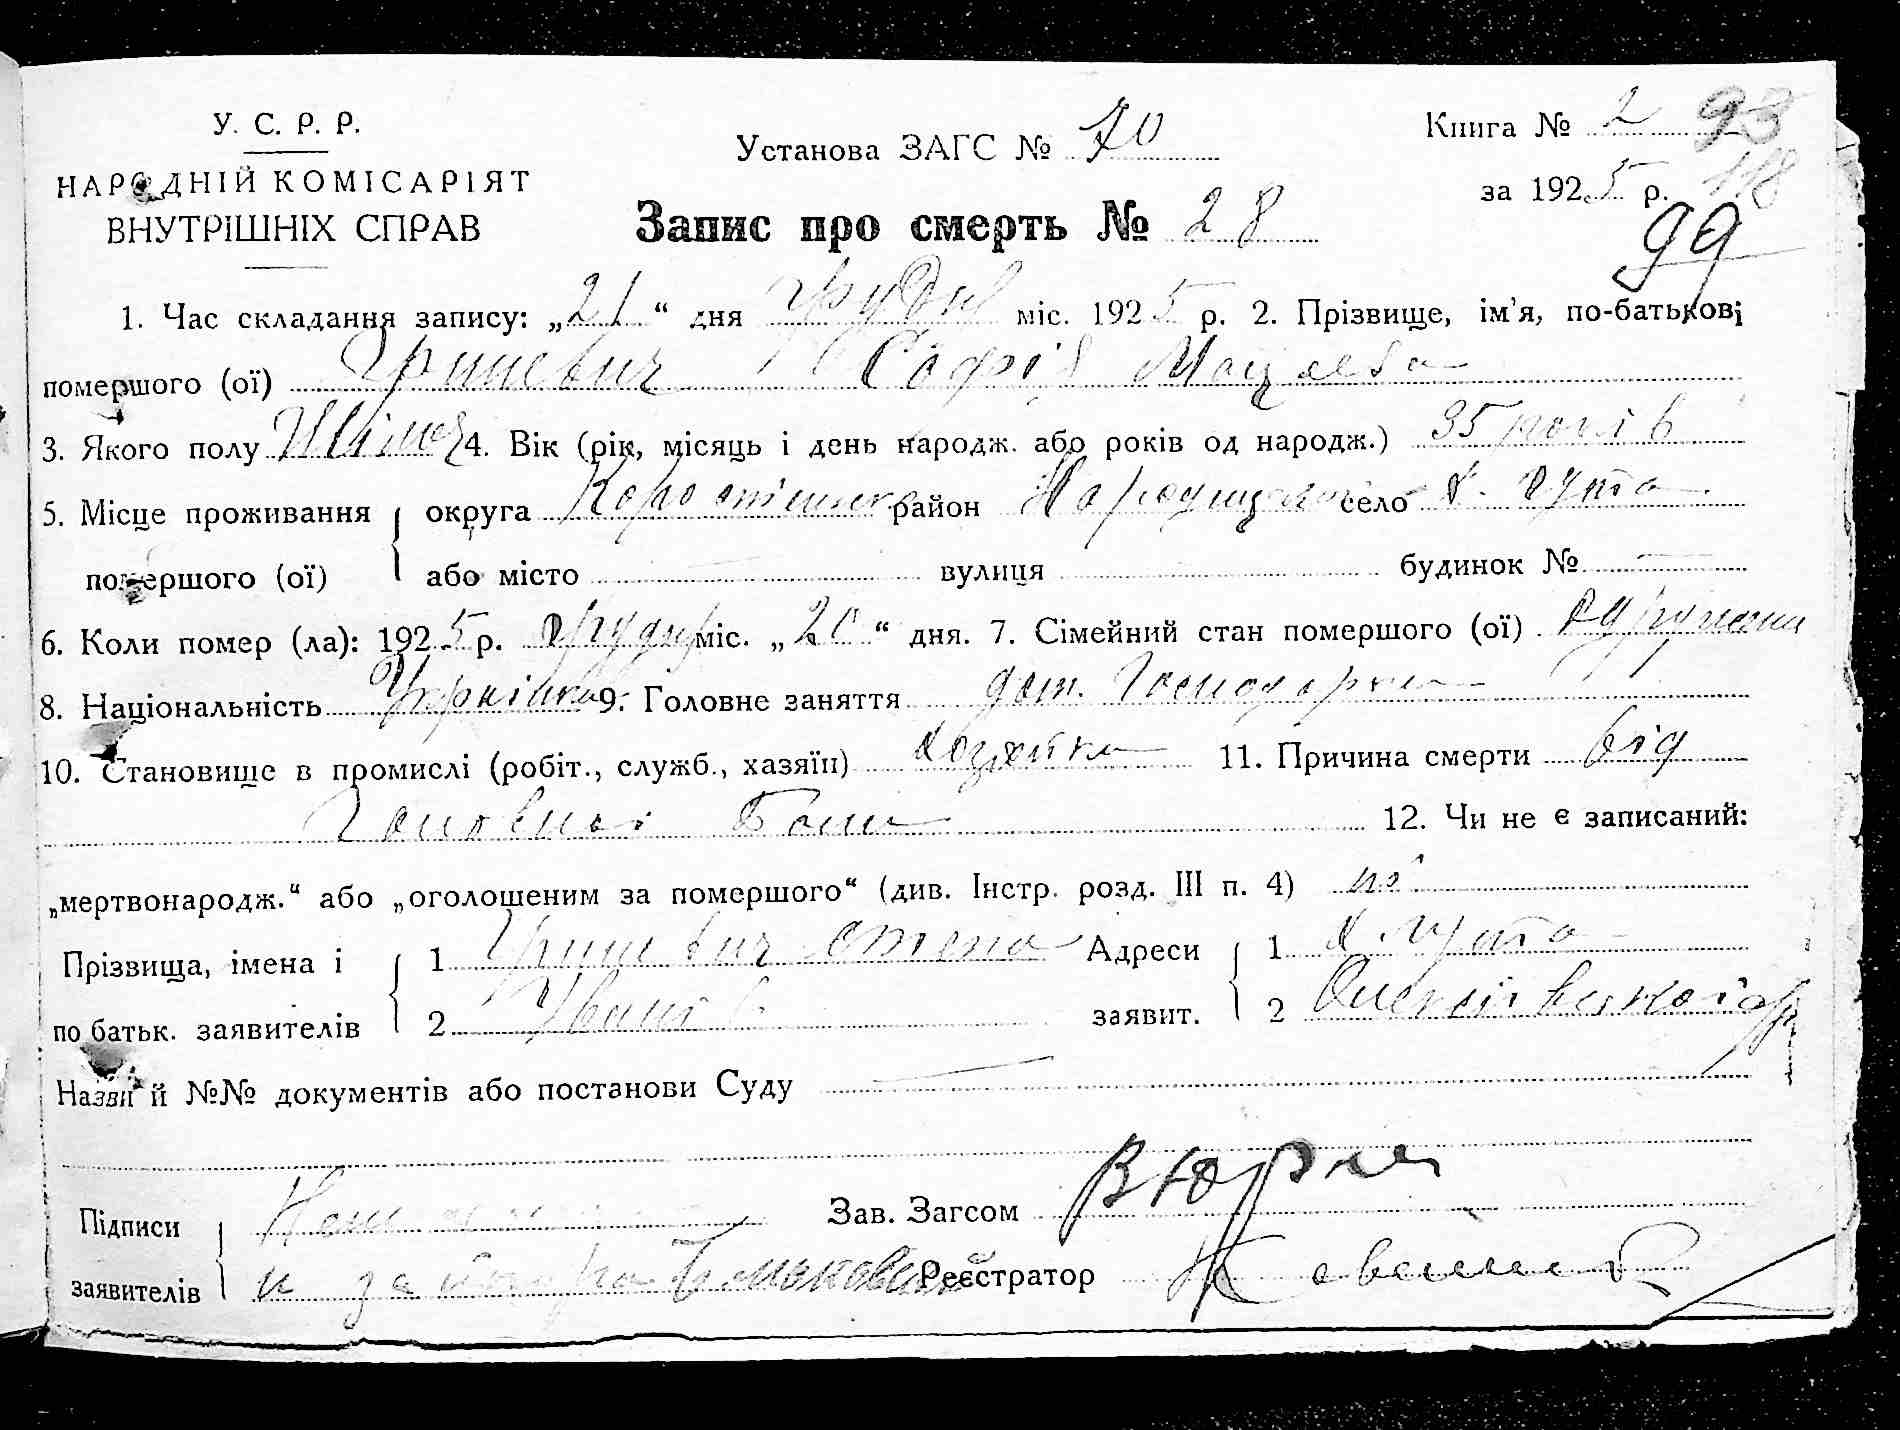 У. С. Р. Р.
НАРОДНІЙ КОМІСАРІЯТ
ВНУТРІШНІХ СПРАВ
Установа ЗАГС № 70
Книга № 2 93
за 1925 р. 118
99
Запис про смерть № 28
1. Час складання запису: „21“ дня грудня міс. 1925 р. 2. Прізвище, ім'я, по-батькові
помершого (ої) Гришевич Софія
3. Якого полу Жіноч 4. Вік (рік, місяць і день народж. або років од народж.) 35 років
5. Місце проживання округа Коростенська район Народицького село х. Гута
помершого (ої) або місто вулиця будинок №
6. Коли помер (ла): 1925 р. грудня міс. „20“ дня. 7. Сімейний стан помершого (ої)
8. Національність Українка 9. Головне заняття дом. Господарка
10. Становище в промислі (робіт., служб., хазяїн) Хозяйка 11. Причина смерти від
Головної Боли 12. Чи не є записаний:
„мертвонародж.“ або „оголошеним за помершого“ (див. Інстр. розд. III п. 4) ні
Прізвища, імена і 1 Гришевич Степа Адреси 1 х. Гута
по батьк. заявителів 2 Іванів заявит. 2
Назви й №№ документів або постанови Суду
Підписи Зав. Загсом
заявителів Реєстратор